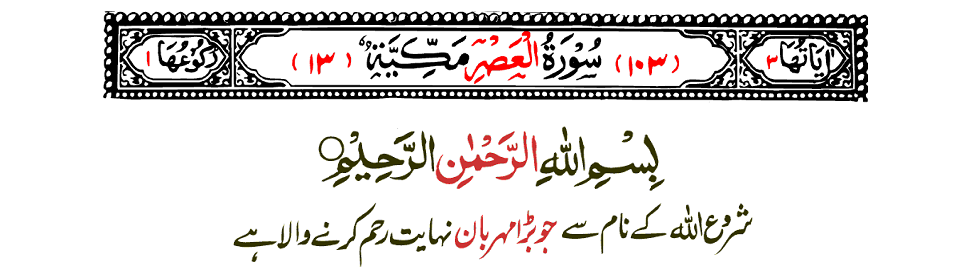 اٰیَاتُهَا ۳ (۱۰۳) سُوْرَةُ الْعَصْرِ مَكِّیَّةٌ (۱۳) رُكُوْعُهَا ۱
بِسْمِ اللّٰهِ الرَّحْمٰنِ الرَّحِیْمِ○
شروع اللہ کے نام سے جو بڑا مہربان نہایت رحم کرنے والا ہے